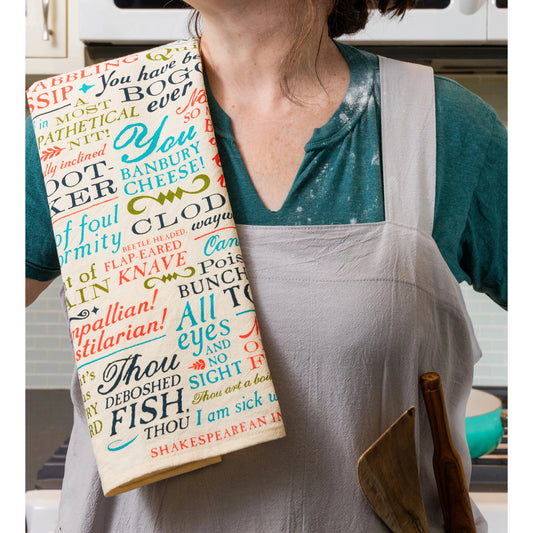 ABBLING
SSIP.
You have b
in A MOST
PATHETICAL
NIT!
BOG
ever
lly inclined
You
BANBURY
CHEESE!
SO
OOT-
KER
of foul
formity
CLOD
wayw
BEETLE-HEADED,
FLAP-EARED
KNAVE
t of
AIN
Can
Pois
BUNCH
TO
mpallian!
stilarian!
All
eyes
AND
NO
SIGHT
Thou
DEBOSHED
FISH,
THOU
Thou art a boi
I am sick w
SHAKESPEAREAN IN